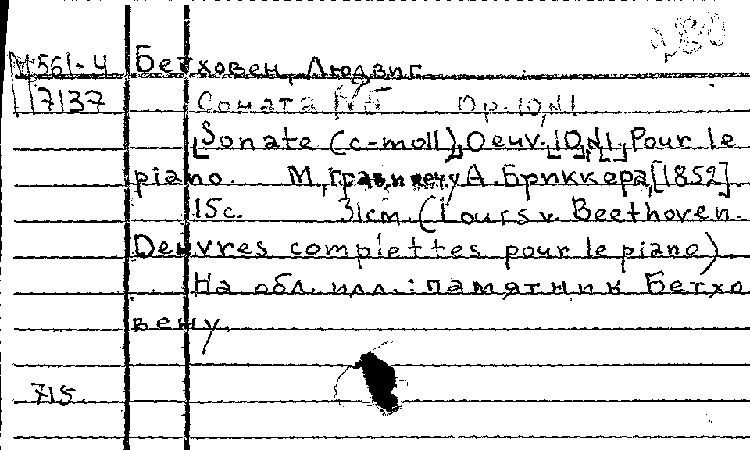 280
М561-4 Бетховен, Людвиг
7137 Соната №5 Op. 10, №1
Sonate (c-moll), Oeuv. 10, №1, Pour le
piano. М., грав. и печ. у А. Бриккера, [1852]
15с. 31cm. (Louis v. Beethoven.
Oeuvres complettes pour le piano).
На обл. илл.: памятник Бетхо
вену.
715